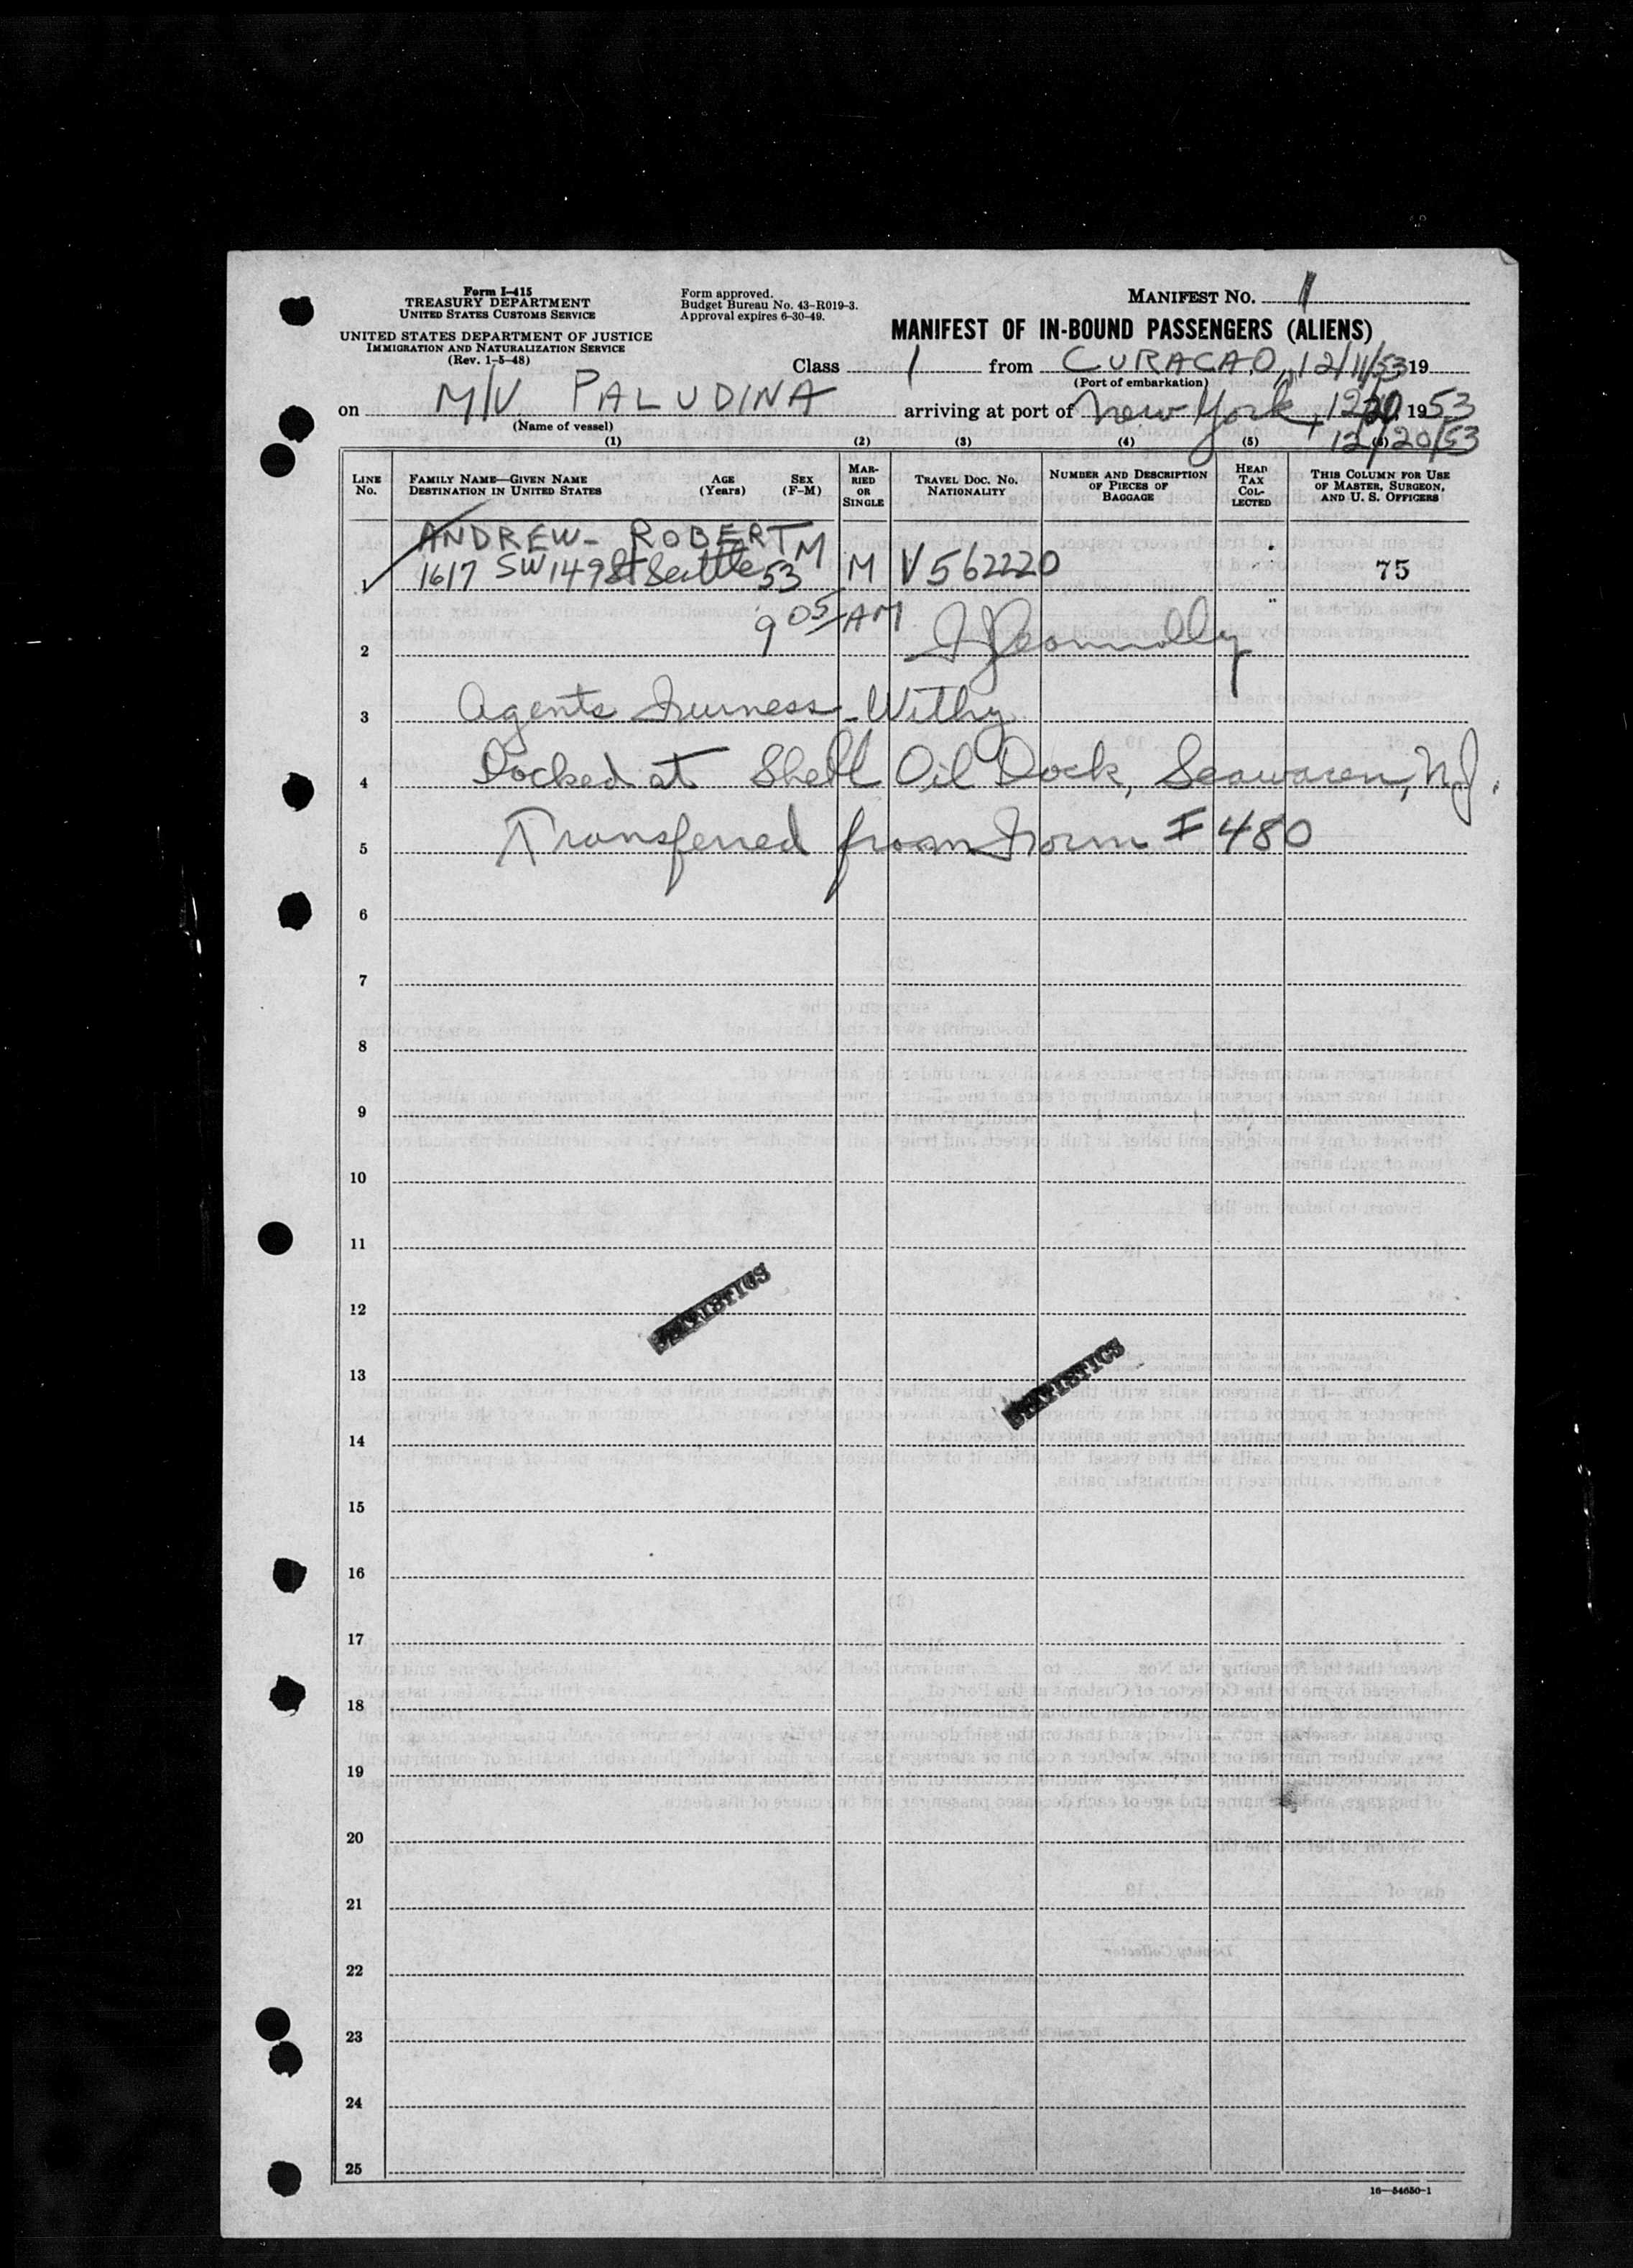 Form I-415
TREASURY DEPARTMENT
UNITED STATES CUSTOMS SERVICE
UNITED STATES DEPARTMENT OF JUSTICE
IMMIGRATION AND NATURALIZATION SERVICE
(Rev. 1-5-48)
Form approved.
Budget Bureau No. 43-R019-3.
Approval expires 6-30-49.
MANIFEST No. 1
MANIFEST OF IN-BOUND PASSENGERS (ALIENS)
Class 1 from CURACAO, 12/11/53 19
(Port of embarkation)
on M/V PALUDINA arriving at port of New York, 12/20, 1953
(Name of vessel)
12/20/53
(1) (2) (3) (4) (5) (6)
LINE No.
FAMILY NAME—GIVEN NAME
DESTINATION IN UNITED STATES
AGE (Years)
SEX (F-M)
MARRIED OR SINGLE
TRAVEL DOC. NO.
NATIONALITY
NUMBER AND DESCRIPTION OF PIECES OF BAGGAGE
HEAD TAX COLLECTED
THIS COLUMN FOR USE OF MASTER, SURGEON, AND U. S. OFFICERS
ANDREW - ROBERT M
1 1617 SW 149 St Seattle 53 M V562220 75
2 9 05 AM Connolly
3 Agents Furness - Withy
4 Docked at Shell Oil Dock, Seawaren, N.J.
5 Transferred from Form I 480
6
7
8
9
10
11
12
STATISTICS
13
STATISTICS
14
15
16
17
18
19
20
21
22
23
24
25
16—54650-1